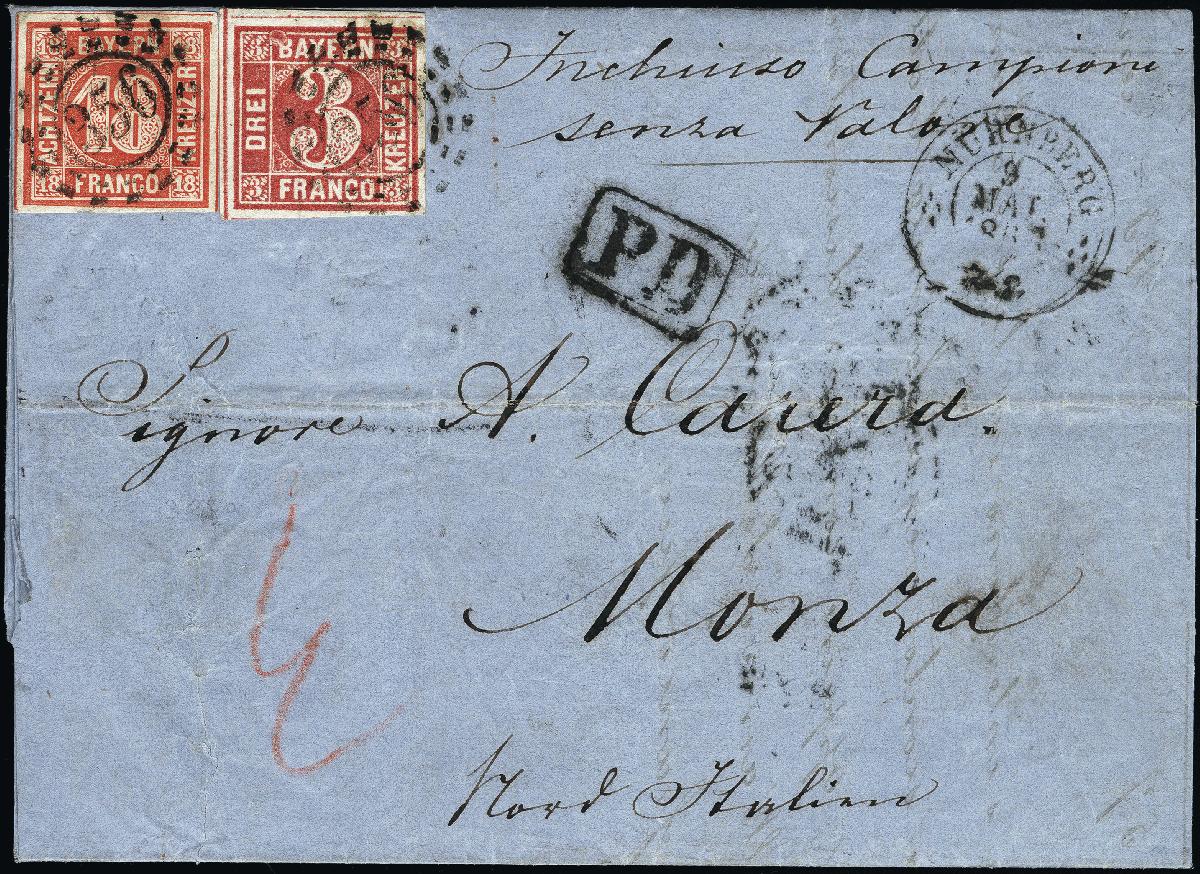 18 BAYERN 18
ACHTZEHN 18 KREUZER
18 FRANCO 18
356
3 BAYERN 3
DREI 3 KREUZER
3 FRANCO 3
Inchiuso Campioni
senza Valore
NÜRNBERG
9
MAI
PD
Signore A. Carera.
Monza
Nord Italien